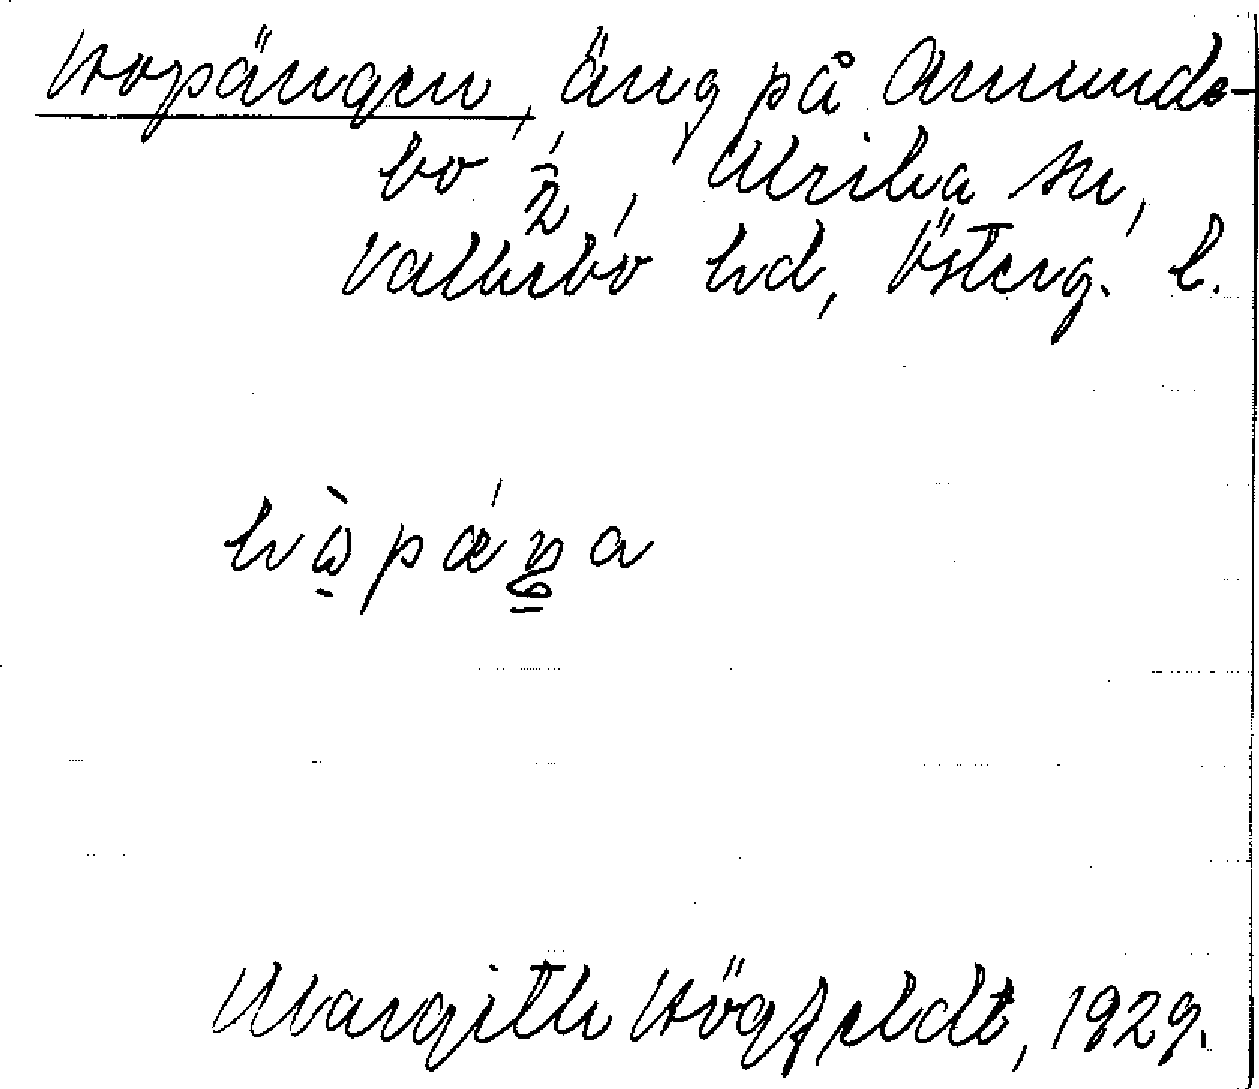 Hopängen, äng på Amunde-
bo ½, Ulrika sn,
Valkebo hd, Österg. l.
Margith Högfeldt, 1929.